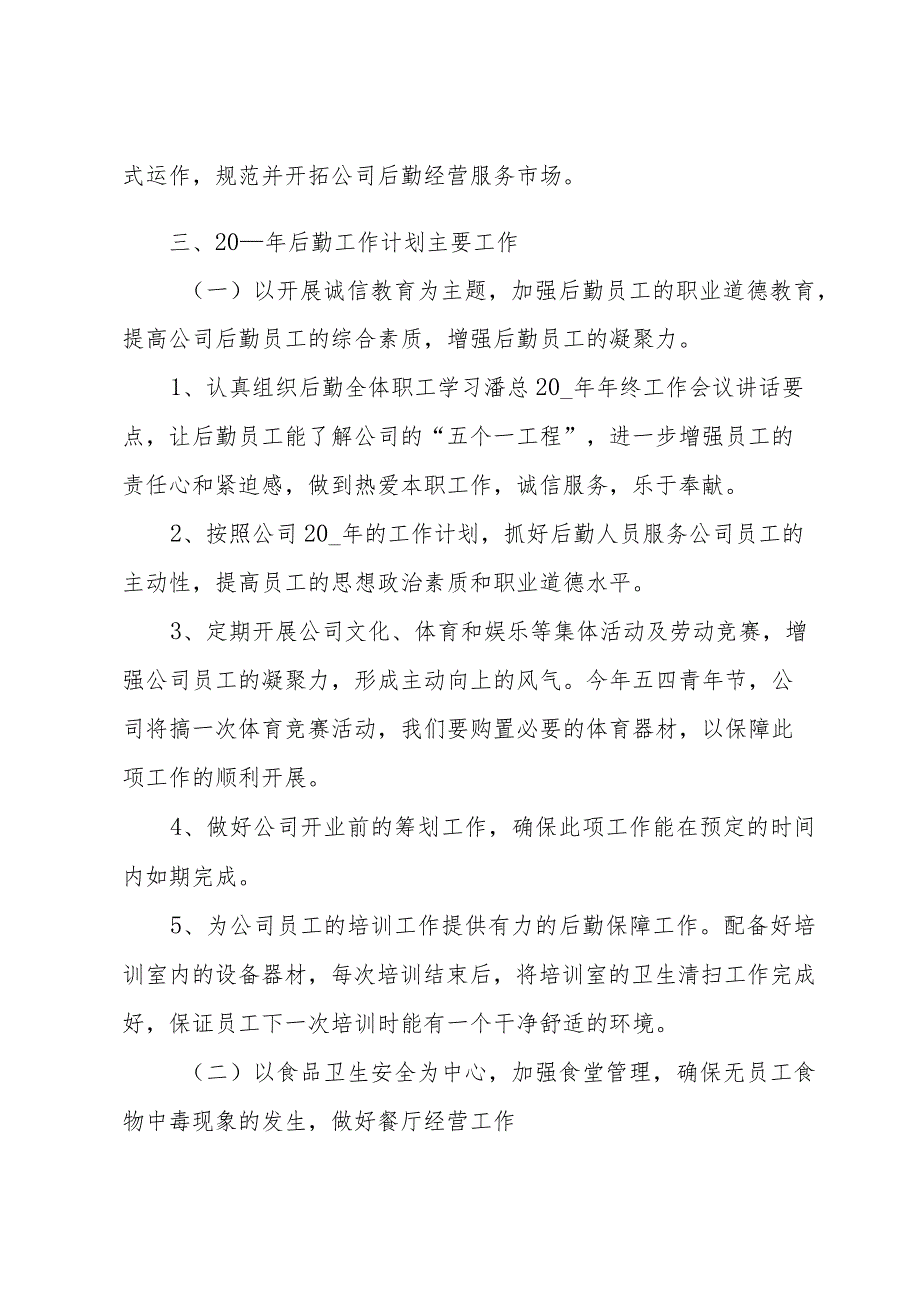 式运作，规范并开拓公司后勤经营服务市场。
三、20一年后勤工作计划主要工作
（一）以开展诚信教育为主题，加强后勤员工的职业道德教育，
提高公司后勤员工的综合素质，增强后勤员工的凝聚力。
1、认真组织后勤全体职工学习潘总20_年年终工作会议讲话要
点，让后勤员工能了解公司的“五个一工程”，进一步增强员工的
责任心和紧迫感，做到热爱本职工作，诚信服务，乐于奉献。
2、按照公司20_年的工作计划，抓好后勤人员服务公司员工的
主动性，提高员工的思想政治素质和职业道德水平。
3、定期开展公司文化、体育和娱乐等集体活动及劳动竞赛，增
强公司员工的凝聚力，形成主动向上的风气。今年五四青年节，公
司将搞一次体育竞赛活动，我们要购置必要的体育器材，以保障此
项工作的顺利开展。
4、做好公司开业前的筹划工作，确保此项工作能在预定的时间
内如期完成。
5、为公司员工的培训工作提供有力的后勤保障工作。配备好培
训室内的设备器材，每次培训结束后，将培训室的卫生清扫工作完成
好，保证员工下一次培训时能有一个干净舒适的环境。
（二）以食品卫生安全为中心，加强食堂管理，确保无员工食
物中毒现象的发生，做好餐厅经营工作